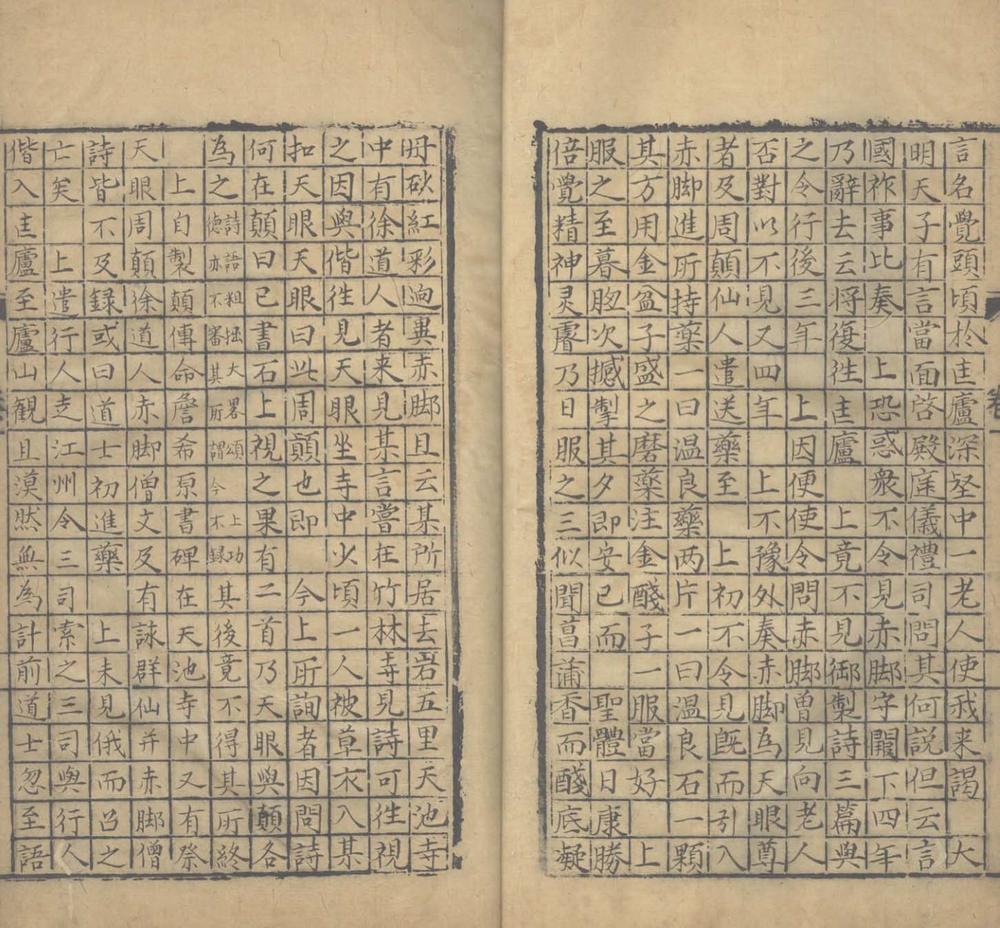 言名覺頭頃於匡廬深坙中一老人使我来謁大
明天子有言當面啓殿庭儀禮司問其何說但云言
國祚事比奏　上恐惑衆不令見赤脚字闕下四年
乃辭去云將復徃匡廬　上竟不見御製詩三篇與
之令行後三年　上因便使令問赤脚曽見向老人
否對以不見又四年　上不豫外奏赤脚為天眼尊
者及周顛仙人遣送藥至　上初不令見旣而引入
赤脚進所持藥一曰温良藥两片一曰温良石一顆
其方用金盆子盛之磨藥注金醆子一服當好　上
服之至暮脗次撼掣其夕即安已而　聖體日康勝
倍覺精神灵睿乃日服之三似聞菖蒲香而醆底凝
丹砂紅彩迥異赤脚且云某所居去岩五里天池寺
中有徐道人者来見某言嘗在竹林寺見詩可徃視
之因與偕徃見天眼坐寺中少頃一人被草衣入某
扣天眼天眼曰此周顛也即　今上所詢者因問詩
何在顛曰已書石上視之果有二首乃天眼與顛各
為之詩語粗拙大畧頌　上功德亦不審其所謂今不録其後竟不得其所終
　上自製顛傳命詹希原書碑在天池寺中又有祭
天眼周顛徐道人赤脚僧文及有詠群仙并赤脚僧
詩皆不及録或曰道士初進藥　上未見俄而召之
亡矣　上遣行人走江州令三司索之三司與行人
偕入匡廬至廬山観且漠然無為計前道士忽至語